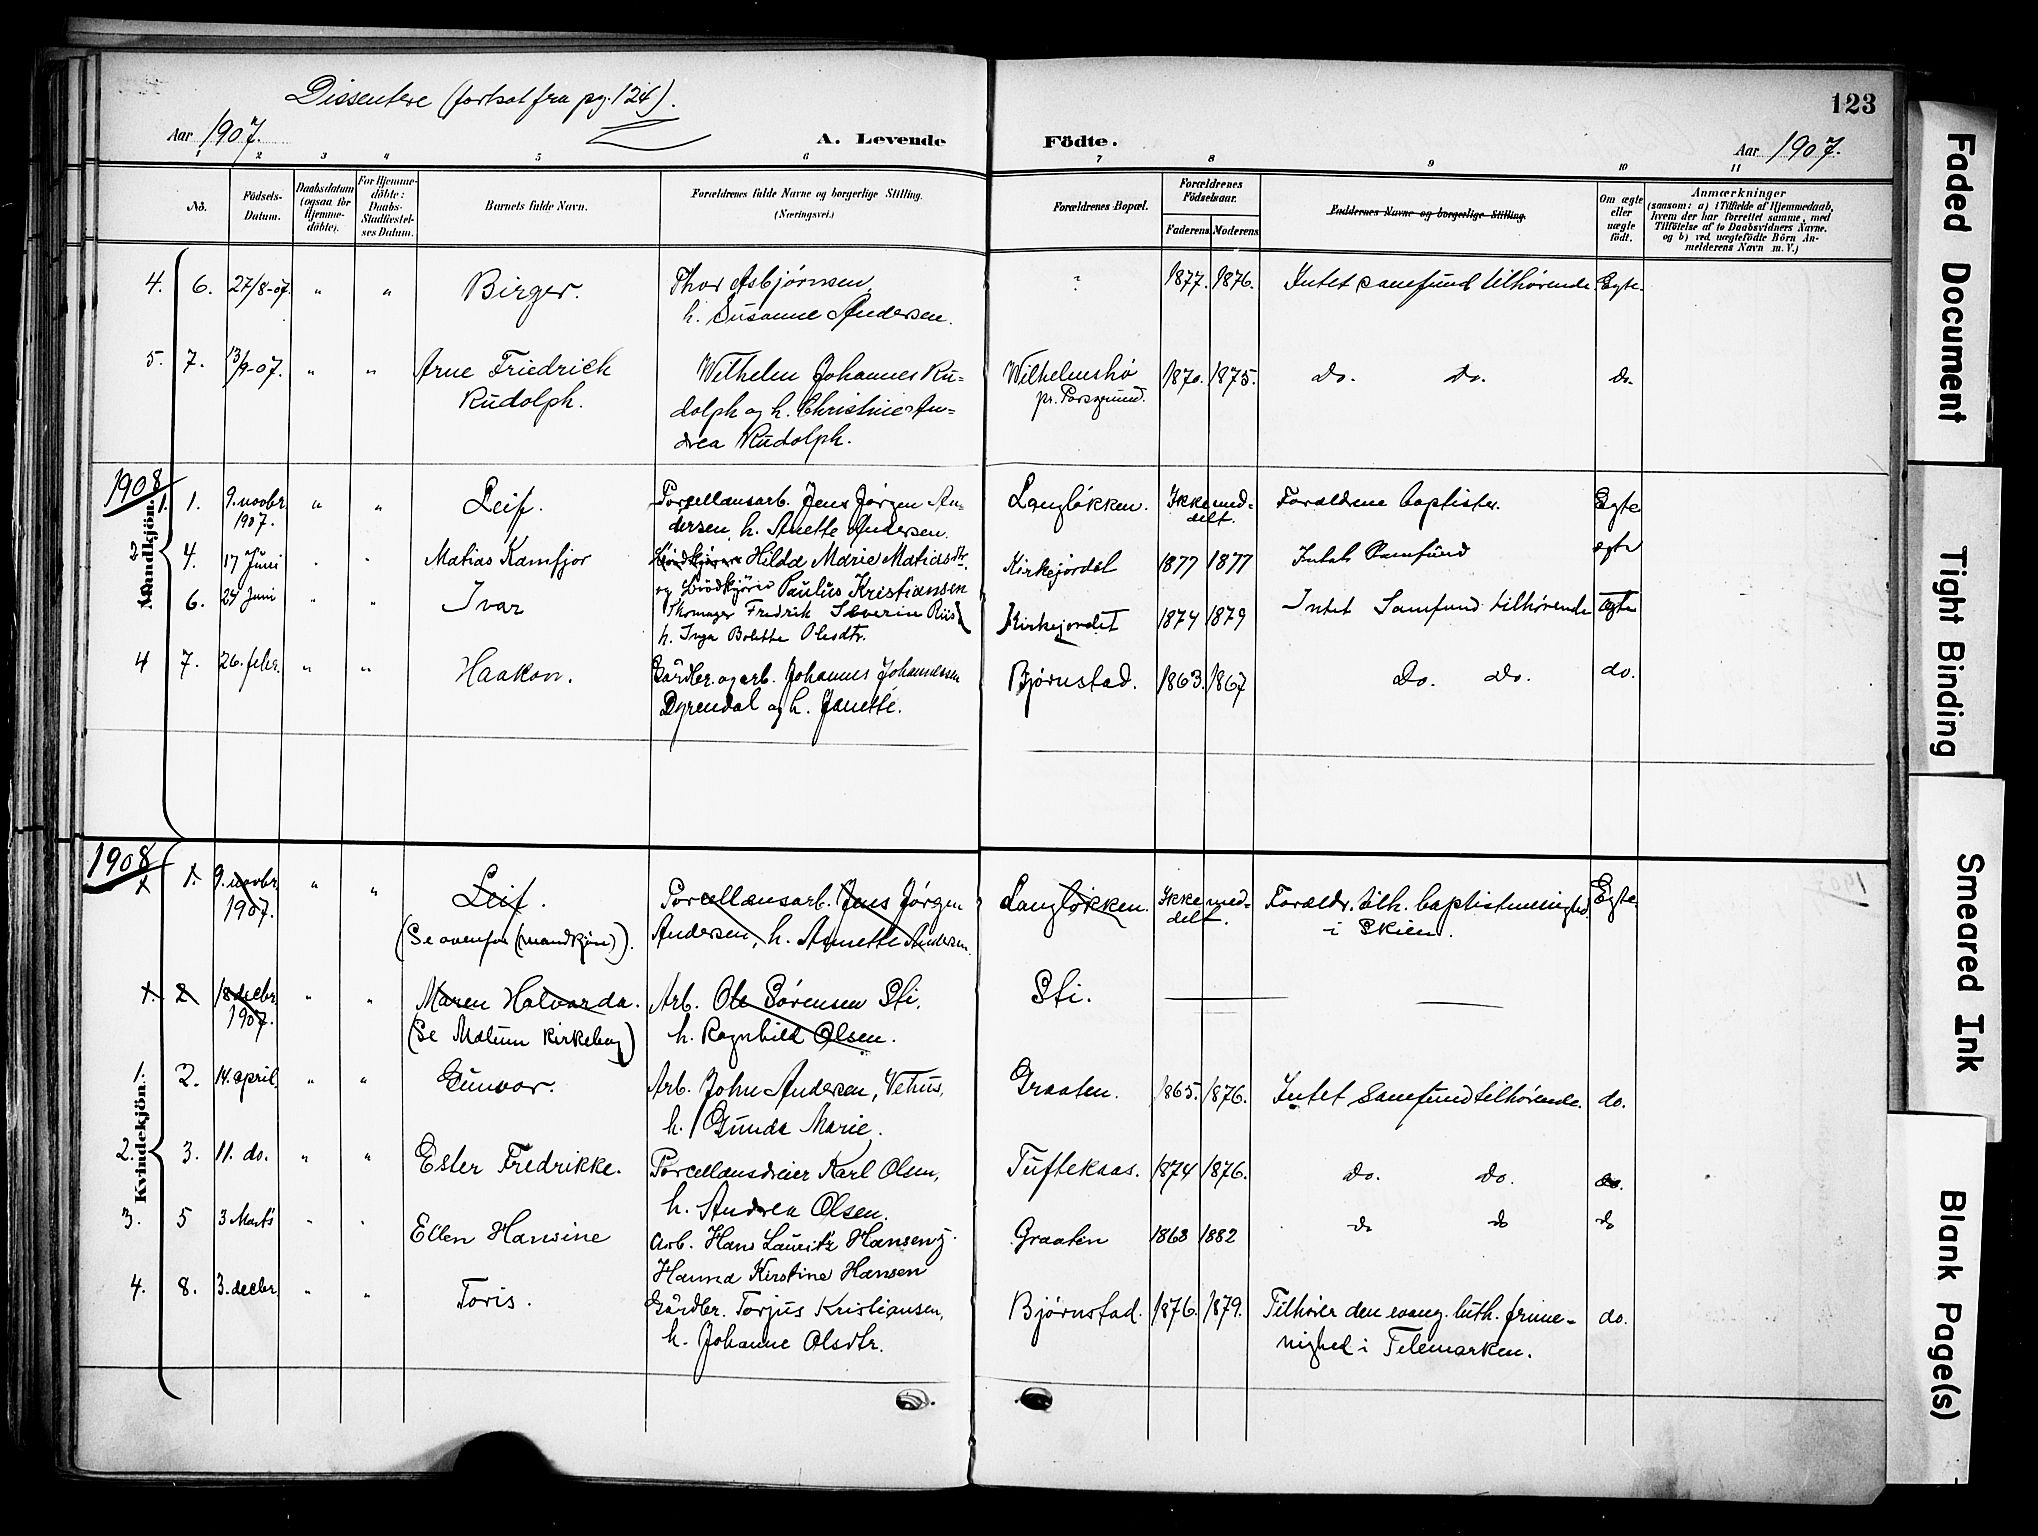 Dissentere (fortsat fra pg. 124).
123
Aar 1907.
A. Levende Födte.
Aar 1907.
1 2 3 4 5 6 7 8 9 10 11
No.
Födsels-Datum.
Daabsdatum (ogsaa for Hjemme-döbte).
For Hjemme-döbte: Daabs-Stadfæstel-ses Datum.
Barnets fulde Navn.
Forældrenes fulde Navne og borgerlige Stilling.
(Næringsvei.)
Forældrenes Bopæl.
Forældrenes Födselsaar.
Faderens. Moderens.
Faddernes Navne og borgerlige Stilling.
Om ægte eller uægte födt.
Anmærkninger
(saasom: a) i Tilfælde af Hjemmedaab,
hvem der har forrettet samme, med
Tilföielse af to Daabsvidners Navne.
og b) ved uægtefödte Börn An-
melderens Navn m. V.)
Mandkjön.
4. 6. 27/8-07. " " Birger. Thor Asbjørnsen, ? 1877. 1876. Intet samfund tilhørende. Egte.
h. Susanne Andersen.
5. 7. 13/9-07. " " Arne Friedrich Wilhelm Johannes Ru- Wilhelmshø 1870. 1875. do. do. do.
Rudolph. dolph og h. Christine An- pr. Porsgrund.
drea Rudolph.
1908
1. 1. 9. novbr. " " Leif. Porcellænsarb. Jens Jørgen An- Langløkken. Ikke med- Forældrene baptister. Egte
1907. dersen, h. Anette Andersen. delt.
2 4. 17 Juni " " Matias Kamfjor Hilda Marie Matiasdtr. Kirkejordet 1877 1877 Intet Samfund ægte
og Brödkjører Paulus Kristiansen
6. 24 Juni " " Ivar Fredrik Severin Riis Kirkejordet 1874 1879 Intet Samfund tilhørende Egte
h. Inga Bolette Olsdtr.
4 7. 26. febr. " " Haakon. Gårdbr. og arb. Johannes Johannesen Bjørnstad. 1863. 1867 do. do. do.
Dyrendal og h. Janette.
1908
Kvindekjön.
1. 1. 9. novbr. " " Leif. Porcellænsarb. Jens Jørgen Langløkken. Ikke med- Forældr. tilh. baptistmenighed Egte.
1907. (Se ovenfor (mandkjön)). Andersen, h. Annette Andersen. delt. i Skien.
1. 2 18 decbr. " " Maren Halvarda. Arb. Ole Sørensen Sti, Sti.
1907. (Se Mælum kirkebog) h. Ragnhild Olsen.
1. 2. 14. april " " Gunvor. Arb. John Andersen, Vehus, Graaten. 1865. 1876. Intet Samfund tilhørende. do.
h. Gunda Marie.
2. 3. 11. do. " " Ester Fredrikke. Porcellænsdreier Karl Olsen, Tufteksas. 1874 1876. do. do. do.
h. Andrea Olsen.
3. 5 3 Marts " " Ellen Hansine Arb. Hans Lauritz Hansen og Graaten 1863 1882 do do do
Hanna Kirstine Hansen
4. 8. 3. decbr. " " Toris. Gårdbr. Torjus Kristiansen, Bjørnstad. 1876. 1879. Tilhører den evang. luth. frime- do.
h. Johanne Olsdtr. nighed i Telemarken.
Faded Document
Tight Binding
Smeared Ink
Blank Page(s)